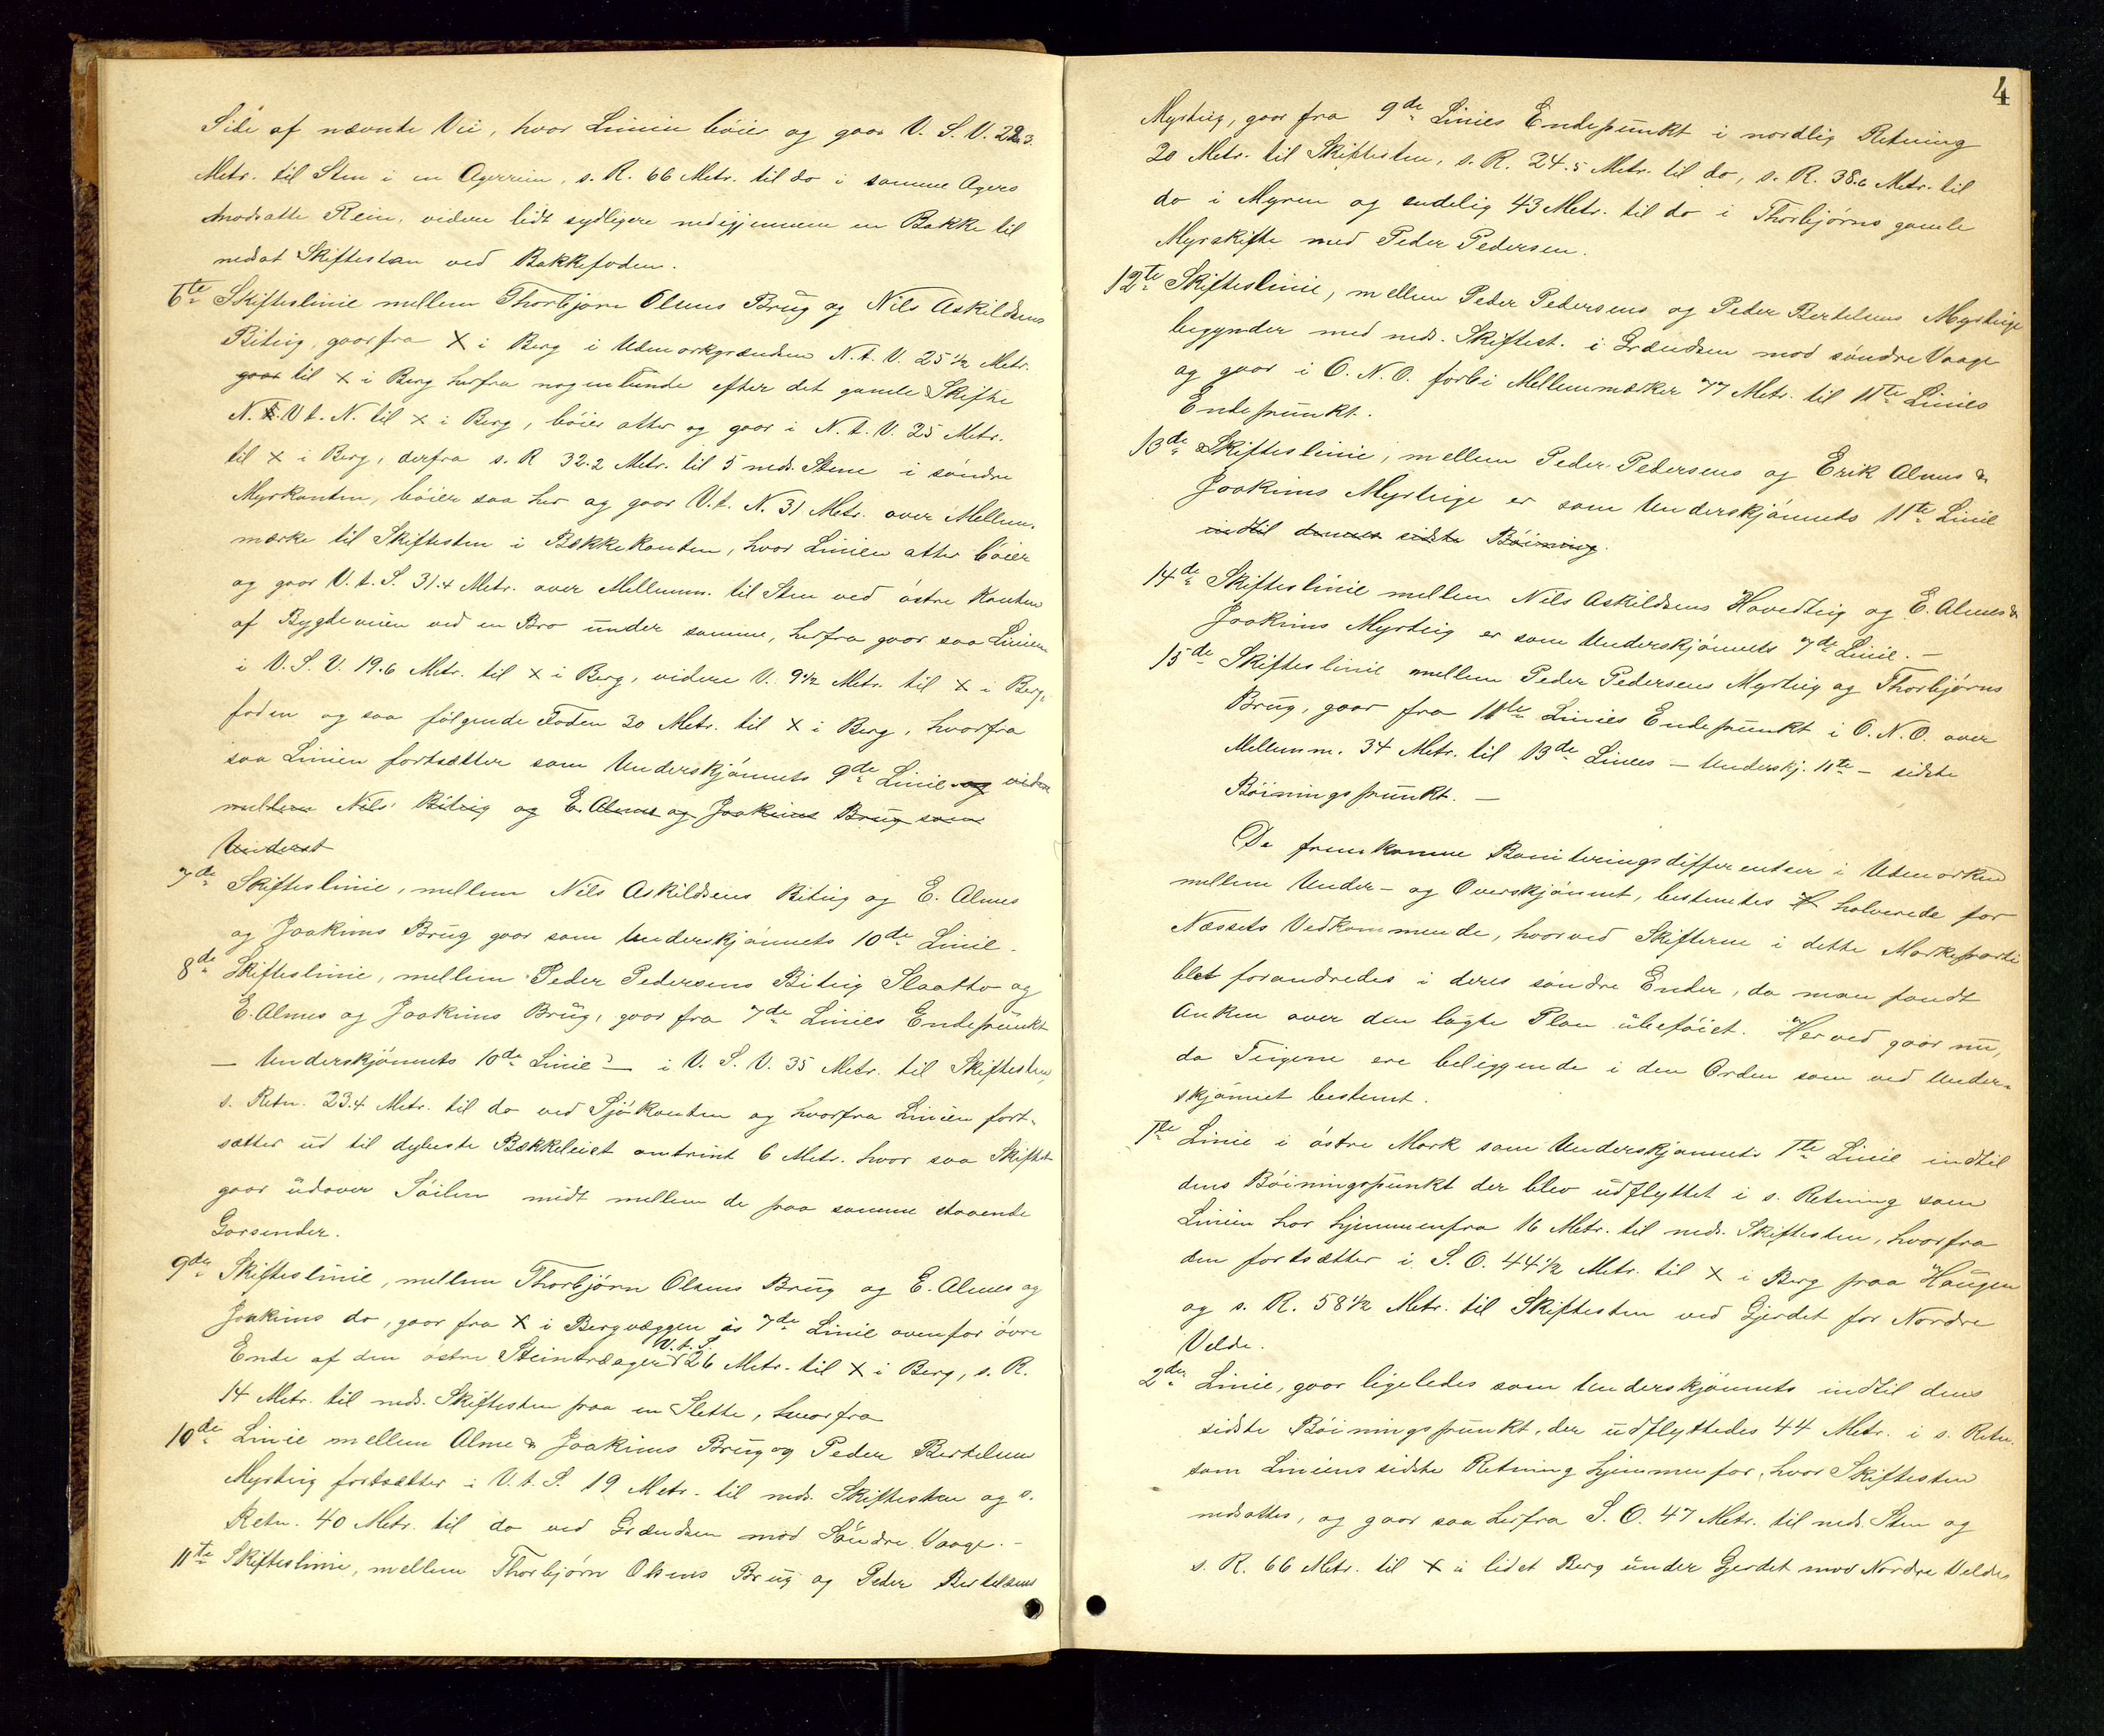 Side af nævnte Vei, hvor Linien böier og gaar V. S. V. 22.3
Metr. til Sten i en Agerrein, s. R. 66 Metr. til do i samme Agers
modsatte Rein, videre lidt sydligere nedigjennem en Bakke til
nedsat Skiftesten ved Bakkefoden.
6te Skifteslinie mellem Thorbjørn Olsens Brug og Nils Askildsens
Biteig, gaar fra X i Berg i Udmarkgrændsen N. t. V. 25 1/2 Metr.
gaar til X i Berg herfra nogenlunde efter det gamle Skifte
N. V. t. N. til X i Berg, böier atter og gaar i N. t. V. 25 Metr.
til X i Berg, derfra s. R 32.2 Metr. til 5 neds. Stene i søndre
Myrkanten, böier saa her og gaar V. t. N. 31 Metr. over Mellem-
mærke til Skiftesten i Bækkekanten, hvor Linien atter böier
og gaar V. t. S. 31.4 Metr. over Mellemm. til Sten ved östre Kanten
af Bygdeveien ved en Bro under samme, herfra gaar saa Linien
i V. S. V. 19.6 Metr. til X i Berg, videre V. 9 1/2 Metr. til X i Berg-
foden og saa følgende Foden 30 Metr. til X i Berg, hvorfra
saa Linien fortsætter som Underskjønnets 9de Linie og videre
mellem Nils' Biteig og E. Almes og Joakims Brug som
Underst
7de Skifteslinie, mellem Nils Askildsens Biteig og E. Almes
og Joakims Brug gaar som Underskjønnets 10de Linie.
8de Skifteslinie, mellem Peder Pedersens Biteig Slaatto og
E. Almes og Joakims Brug, gaar fra 7de Linies Endepunkt
— Underskjønnets 10de Linie — i V. S. V. 35 Metr. til Skiftesten,
s. Retn. 23.4 Metr. til do ved Sjökanten og hvorfra Linien fort-
sætter ud til dybeste Bækkeleiet omtrint 6 Metr. hvor saa Skiftet
gaar udover Söilen midt mellem de paa samme staaende
Garsender.
9de Skifteslinie, mellem Thorbjørn Olsens Brug og E. Almes og
Joakims do, gaar fra X i Bergvæggen i 7de Linie ovenfor övre
Ende af den östre Steintræager V. t. S. 26 Metr. til X i Berg, s. R.
14 Metr. til neds. Skiftesten paa en Slette, hvorfra
10de Linie mellem Alme & Joakims Brug og Peder Bertelsens
Myrteig fortsætter i V. t. S. 19 Metr. til neds. Skiftesten og s.
Retn. 40 Metr. til do ved Grændsen mod Söndre Vaage. —
11te Skifteslinie, mellem Thorbjørn Olsens Brug og Peder Bertelsens
4
Myrteig, gaar fra 9de Linies Endepunkt i nordlig Retning
20 Metr. til Skiftesten, s. R. 24.5 Metr. til do, s. R. 38.6 Metr. til
do i Myren og endelig 43 Metr. til do i Thorbjørns gamle
Myrskifte med Peder Pedersen.
12te Skifteslinie, mellem Peder Pedersens og Peder Bertelsens Myrteige
begynder med neds. Skiftest. i Grændsen mod söndre Vaage
og gaar i O. N. O. forbi Mellemmærker 77 Metr. til 11te Linies
Endepunkt.
13de Skifteslinie, mellem Peder Pedersens og Erik Almes &
Joakims Myrteige er som Underskjønnets 11te Linie
indtil dennes sidste Böining.
14de Skifteslinie mellem Nils Askildsens Hovedteig og E. Almes &
Joakims Myrteig er som Underskjønnets 7de Linie. —
15de Skifteslinie mellem Peder Pedersens Myrteig og Thorbjørns
Brug, gaar fra 11te Linies Endepunkt i O. N. O. over
Mellemm. 34 Metr. til 13de Linies — Underskj. 11te — sidste
Böiningspunkt. —
De fremkomne Boniteringsdifferentser i Udmarken
mellem Under- og Overskjønnet, bestemtes halverede for
Næssets Vedkommende, hvorved Skifterne i dette Markeparti
blot forandredes i deres söndre Ender, da man fandt
Anken over den lagte Plan ubeföiet. Herved gaar nu,
da Teigene ere beliggende i den Orden som ved Under-
skjønnet bestemt.
1te Linie i östre Mark som Underskjønnets 1te Linie indtil
dens Böiningspunkt der blev udflyttet i s. Retning som
Linien har hjemmenfra 16 Metr. til neds. Skiftesten, hvorfra
den fortsætter i S. O. 44 1/2 Metr. til X i Berg paa Haugen
og s. R. 58 1/2 Metr. til Skiftesten ved Gjerdet for Nordre
Velde.
2den Linie, gaar ligeledes som Underskjønnets indtil dens
sidste Böiningspunkt, der udflyttedes 44 Metr. i s. Retn.
som Liniens sidste Retning hjemmenfor, hvor Skiftesten
nedsattes, og gaar saa herfra S. O. 47 Metr. til neds. Sten og
s. R. 66 Metr. til X i lidet Berg under Gjerdet mod Nordre Veldes